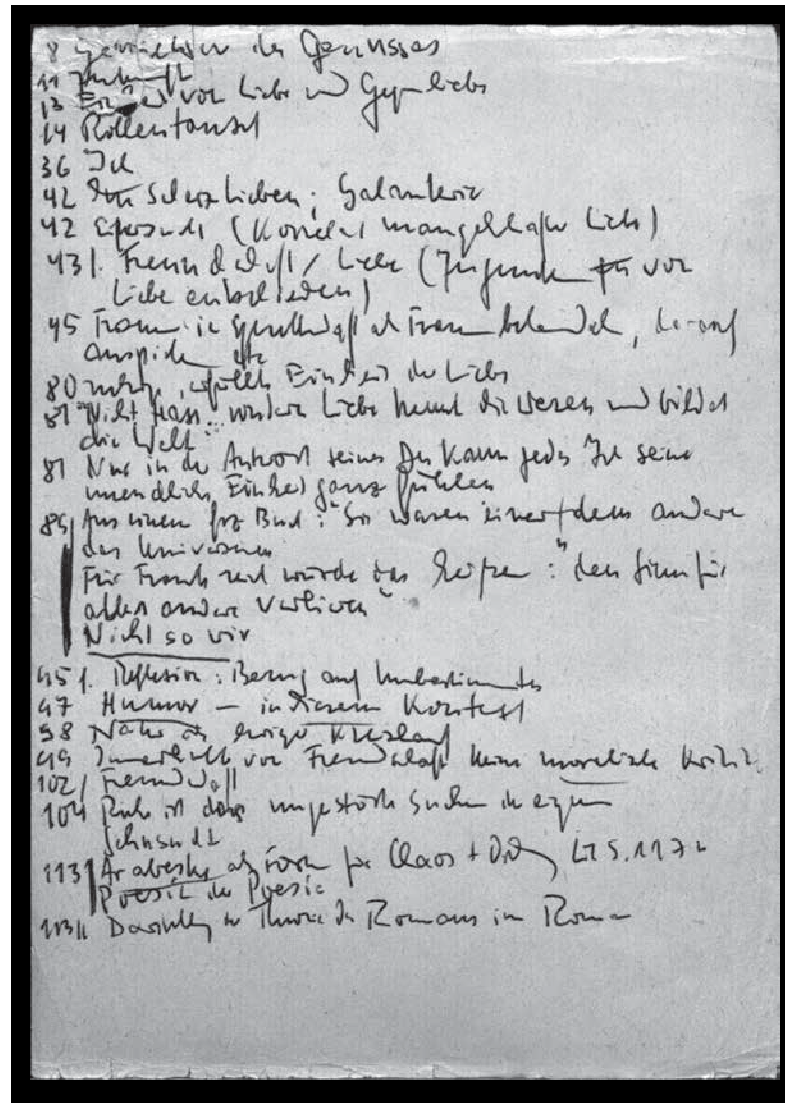 8 des Genusses
11 Zukunft
13 von Liebe und Gegenliebe
14 Rollentausch
36 Ich
42 Scherz lieben; Galanterie
42 Eifersucht (Korrelat mangelhafter Liebe)
43 f. Freundschaft / Liebe ( vor
Liebe entschieden)
45 Frauen in Gesellschaft als Frauen behandeln, darauf
anspielen etc
80 Einheit der Liebe
81 "Nicht Hass sondern Liebe trennt die Wesen und bildet
die Welt"
81 Nur in der Antwort seines Du kann jedes Ich seine
unendliche Einheit ganz fühlen
89 Aus einem frz Buch: "Sie waren einer dem andern
das Universum
Für Frank reich würde das heißen: "den Sinn für
alles andere verlieren"
Nicht so wir
95 f. Reflexion: Bezug auf Unbestimmtes
97 Humor – in diesem Kontext
98 Nähe ewiger Kreislauf
99 Innerhalb von Freundschaft keine moralische Kritik
102 f Freundschaft
104 Ruhe ist das ungestörte Suchen in eigener
Sehnsucht
113 f Arabeske als Form für Chaos + Ordnung S. 1172
Poesie der Poesie
113 ff Darstellung der Theorie des Romans im Roman